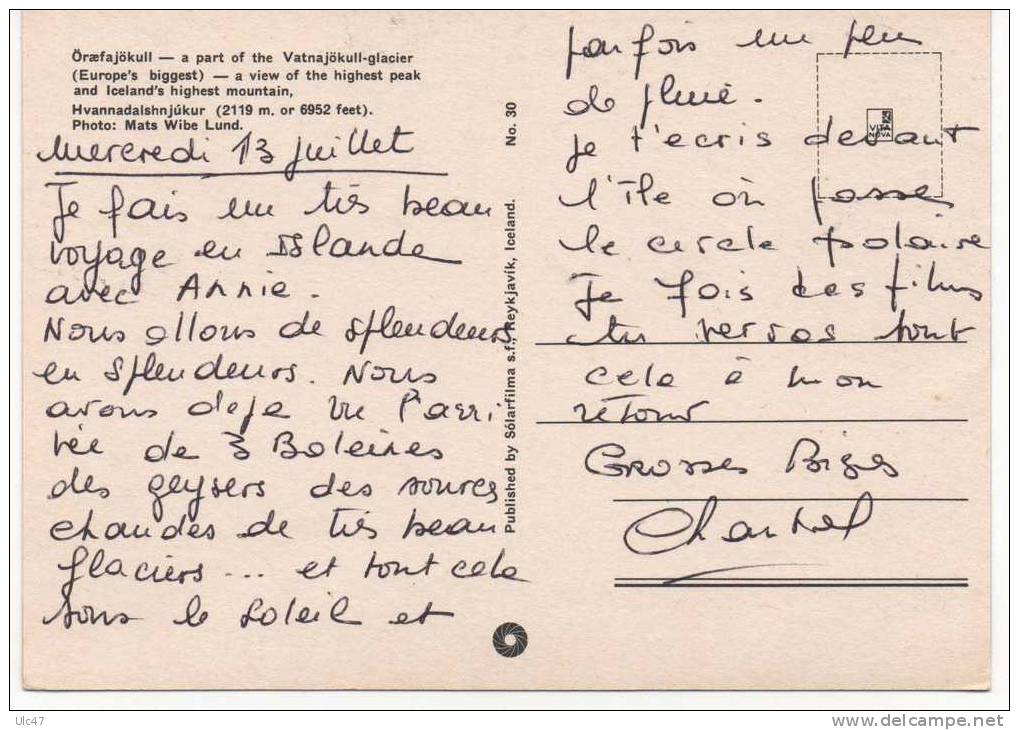 Öræfajökull — a part of the Vatnajökull-glacier
(Europe's biggest) — a view of the highest peak
and Iceland's highest mountain,
Hvannadalshnjúkur (2119 m. or 6952 feet).
Photo: Mats Wibe Lund.
Mercredi 13 juillet
Je fais un très beau
voyage en Islande
avec Annie.
Nous allons de splendeurs
en splendeurs. Nous
avons deja vu l'arri
vée de 3 Baleines
des geysers des sources
chaudes de très beau
glaciers ... et tout cela
sous le soleil et
parfois un peu
de pluie.
je t'ecris devant
l'île où passe
le cercle polaire
Je fais des films
tu verras tout
cela à mon
retour
Grosses Bises
Chantal
VITA
NOVA
No. 30
Published by Sólarfilma s.f., Reykjavík, Iceland.
Ulc47
delcampe.net